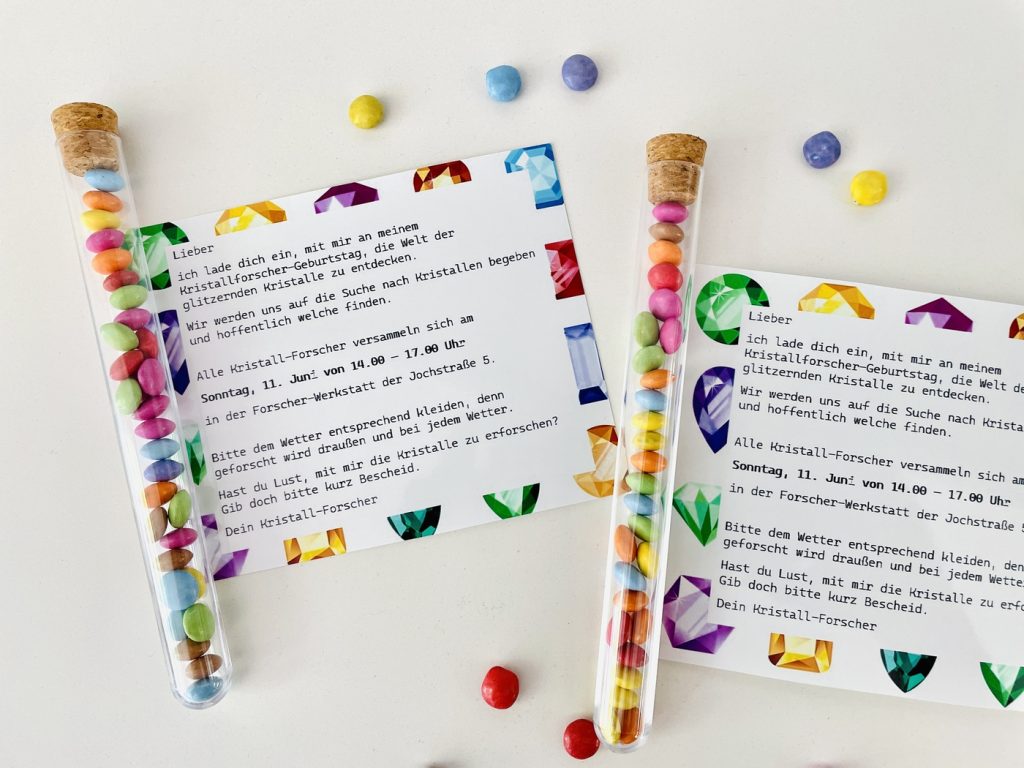 Lieber
ich lade dich ein, mit mir an meinem
Kristallforscher-Geburtstag, die Welt der
glitzernden Kristalle zu entdecken.
Wir werden uns auf die Suche nach Kristallen begeben
und hoffentlich welche finden.
Alle Kristall-Forscher versammeln sich am
Sonntag, 11. Juni von 14.00 – 17.00 Uhr
in der Forscher-Werkstatt der Jochstraße 5.
Bitte dem Wetter entsprechend kleiden, denn
geforscht wird draußen und bei jedem Wetter.
Hast du Lust, mit mir die Kristalle zu erforschen?
Gib doch bitte kurz Bescheid.
Dein Kristall-Forscher
Lieber
ich lade dich ein, mit mir an meinem
Kristallforscher-Geburtstag, die Welt de
glitzernden Kristalle zu entdecken.
Wir werden uns auf die Suche nach Krista
und hoffentlich welche finden.
Alle Kristall-Forscher versammeln sich am
Sonntag, 11. Juni von 14.00 – 17.00 Uhr
in der Forscher-Werkstatt der Jochstraße 5
Bitte dem Wetter entsprechend kleiden, den
geforscht wird draußen und bei jedem Wette
Hast du Lust, mit mir die Kristalle zu erfo
Gib doch bitte kurz Bescheid.
Dein Kristall-Forscher